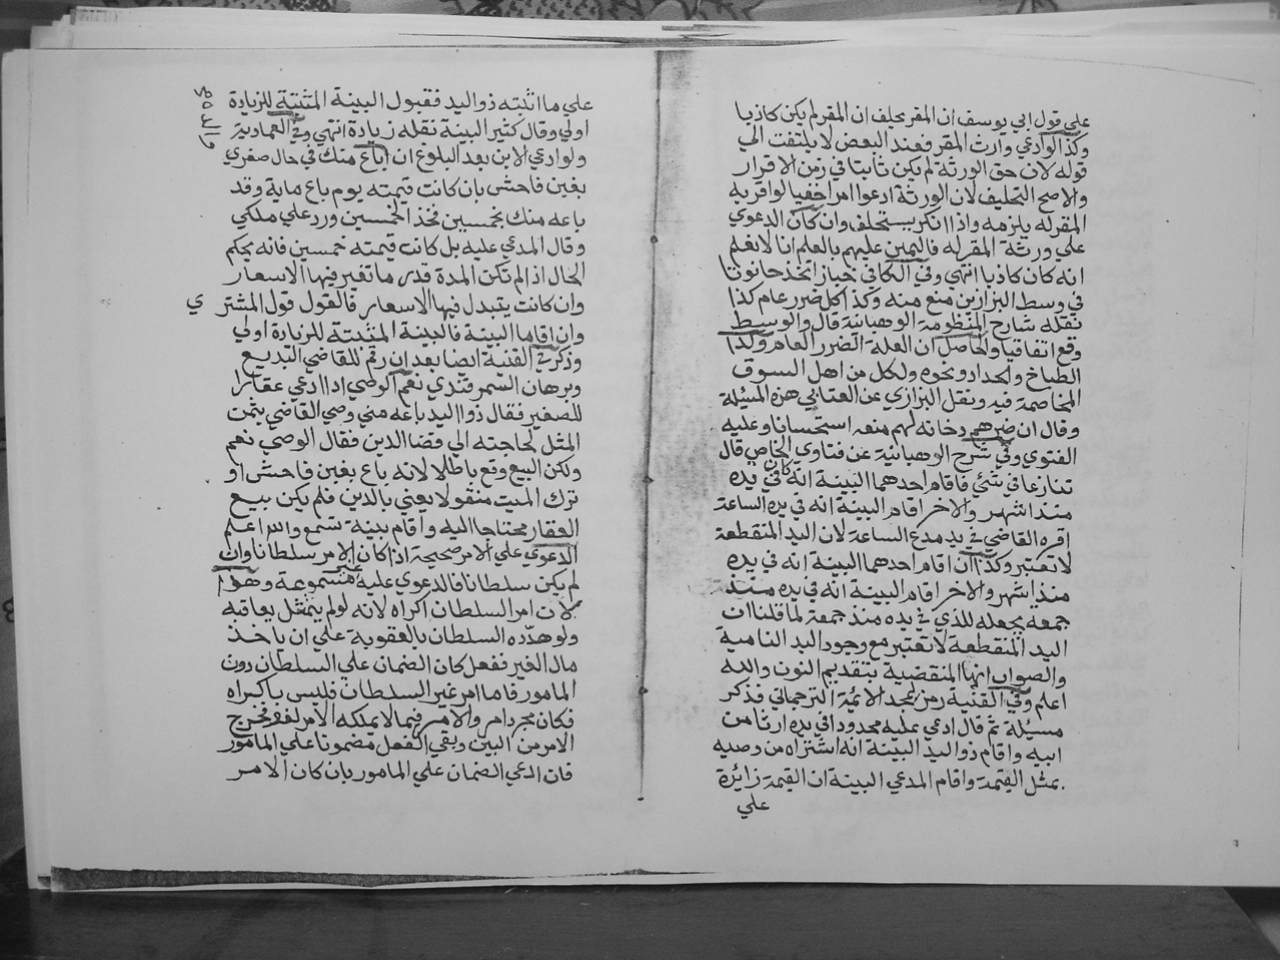 علي قول ابي يوسف ان المقر يحلف ان المقر لم يكن كاذبا
وكذا لو ادعي وارث المقر فعند البعض لا يلتفت الي
قوله لان حق الورثة لم يكن ثابتا في زمن الاقرار
والاصح التحليف لان الورثة ادعوا امرا خفيا لو اقر به
المقر له يلزمه واذا انكر يستحلف وان كان الدعوي
علي ورثة المقر له فاليمين عليهم بالعلم انا لا نعلم
انه كان كاذبا انتهي وفي الكافي خباز اتخذ حانوتا
في وسط البزازين منع منه وكذا كل ضرر عام كذا
نقله شارح المنظومة الوهبانية قال والوسط
وقع اتفاقيا والحاصل ان العلة الضرر العام وكذا
الطباخ والحداد ونحوه ولكل من اهل السوق
المخاصمة فيه ونقل البزازي عن العتابي هذه المسئلة
وقال ان ضرهم دخانه لهم منعه استحسانا وعليه
الفتوي وفي شرح الوهبانية عن فتاوي الخاص قال
تنازعا في شئي فاقام احدهما البينة انه كان في يده
منذ اشهر والاخر اقام البينة انه في يده الساعة
اقره القاضي في يد مدع الساعة لان اليد المنقطعة
لا تعتبر وكذا ان اقام احدهما البينة انه في يده
منذ اشهر والاخر اقام البينة انه في يده منذ
جمعة يجعله للذي في يده منذ جمعة لما قلنا ان
اليد المنقطعة لا تعتبر مع وجود اليد النامية
والصواب انها المنقضية بتقديم النون والله
اعلم وفي القنية رمز لمجد الائمة الترجماني فذكر
مسئلة ثم قال ادعي عليه محدودا في يده ارثا من
ابيه واقام ذو اليد البينة انه اشتراه من وصيه
بمثل القيمة واقام المدعي البينة ان القيمة زائرة
علي
علي ما اثبته ذو اليد فقبول البينة المثبتة للزيادة
اولي وقال كثير البينة نقله زيادة انتهي وفي العمادية
ولو ادعي الابن بعد البلوغ ان اباع منك في حال صغري
بغبن فاحش بان كانت قيمته يوم باع ماية وقد
باعه منك بخمسين فخذ الخمسين ورد علي ملكي
وقال المدعي عليه بل كانت قيمته خمسين فانه يحكم
الحال اذا لم تكن المدة قدر ما تغير فيها الاسعار
وان كانت يتبدل فيها الاسعار فالقول قول المشتري
وان اقاما البينة فالبينة المثبتة للزيادة اولي
وذكر في القنية ايضا بعد ان رقم للقاضي البديع
وبرهان السمرقندي نعم الوصي اذا ادعي عقارا
للصغير فقال ذو اليد باعه مني وصي القاضي بثمن
المثل لحاجته الي قضا الدين فقال الوصي نعم
ولكن البيع وقع باطلا لانه باع بغبن فاحش او
ترك الميت منقولا يعني بالدين فلم يكن بيع
العقار محتاجا اليه واقام بينة تسمع والله اعلم
الدعوي علي الامر صحيحة اذا كان الامر سلطانا وان
لم يكن سلطانا فالدعوي عليه غير مسموعة وهذا
لان امر السلطان اكراه لانه لو لم يمتثل يعاقبه
ولو هدده السلطان بالعقوبة علي ان ياخذ
مال الغير ففعل كان الضمان علي السلطان دون
المامور فاما امر غير السلطان فليس باكراه
فكان مجرد امر والامر فيما لا يملكه الامر لغو فخرج
الامر من البين وبقي الفعل مضمونا علي المامور
فان ادعي الضمان علي المامور بان كان الامر